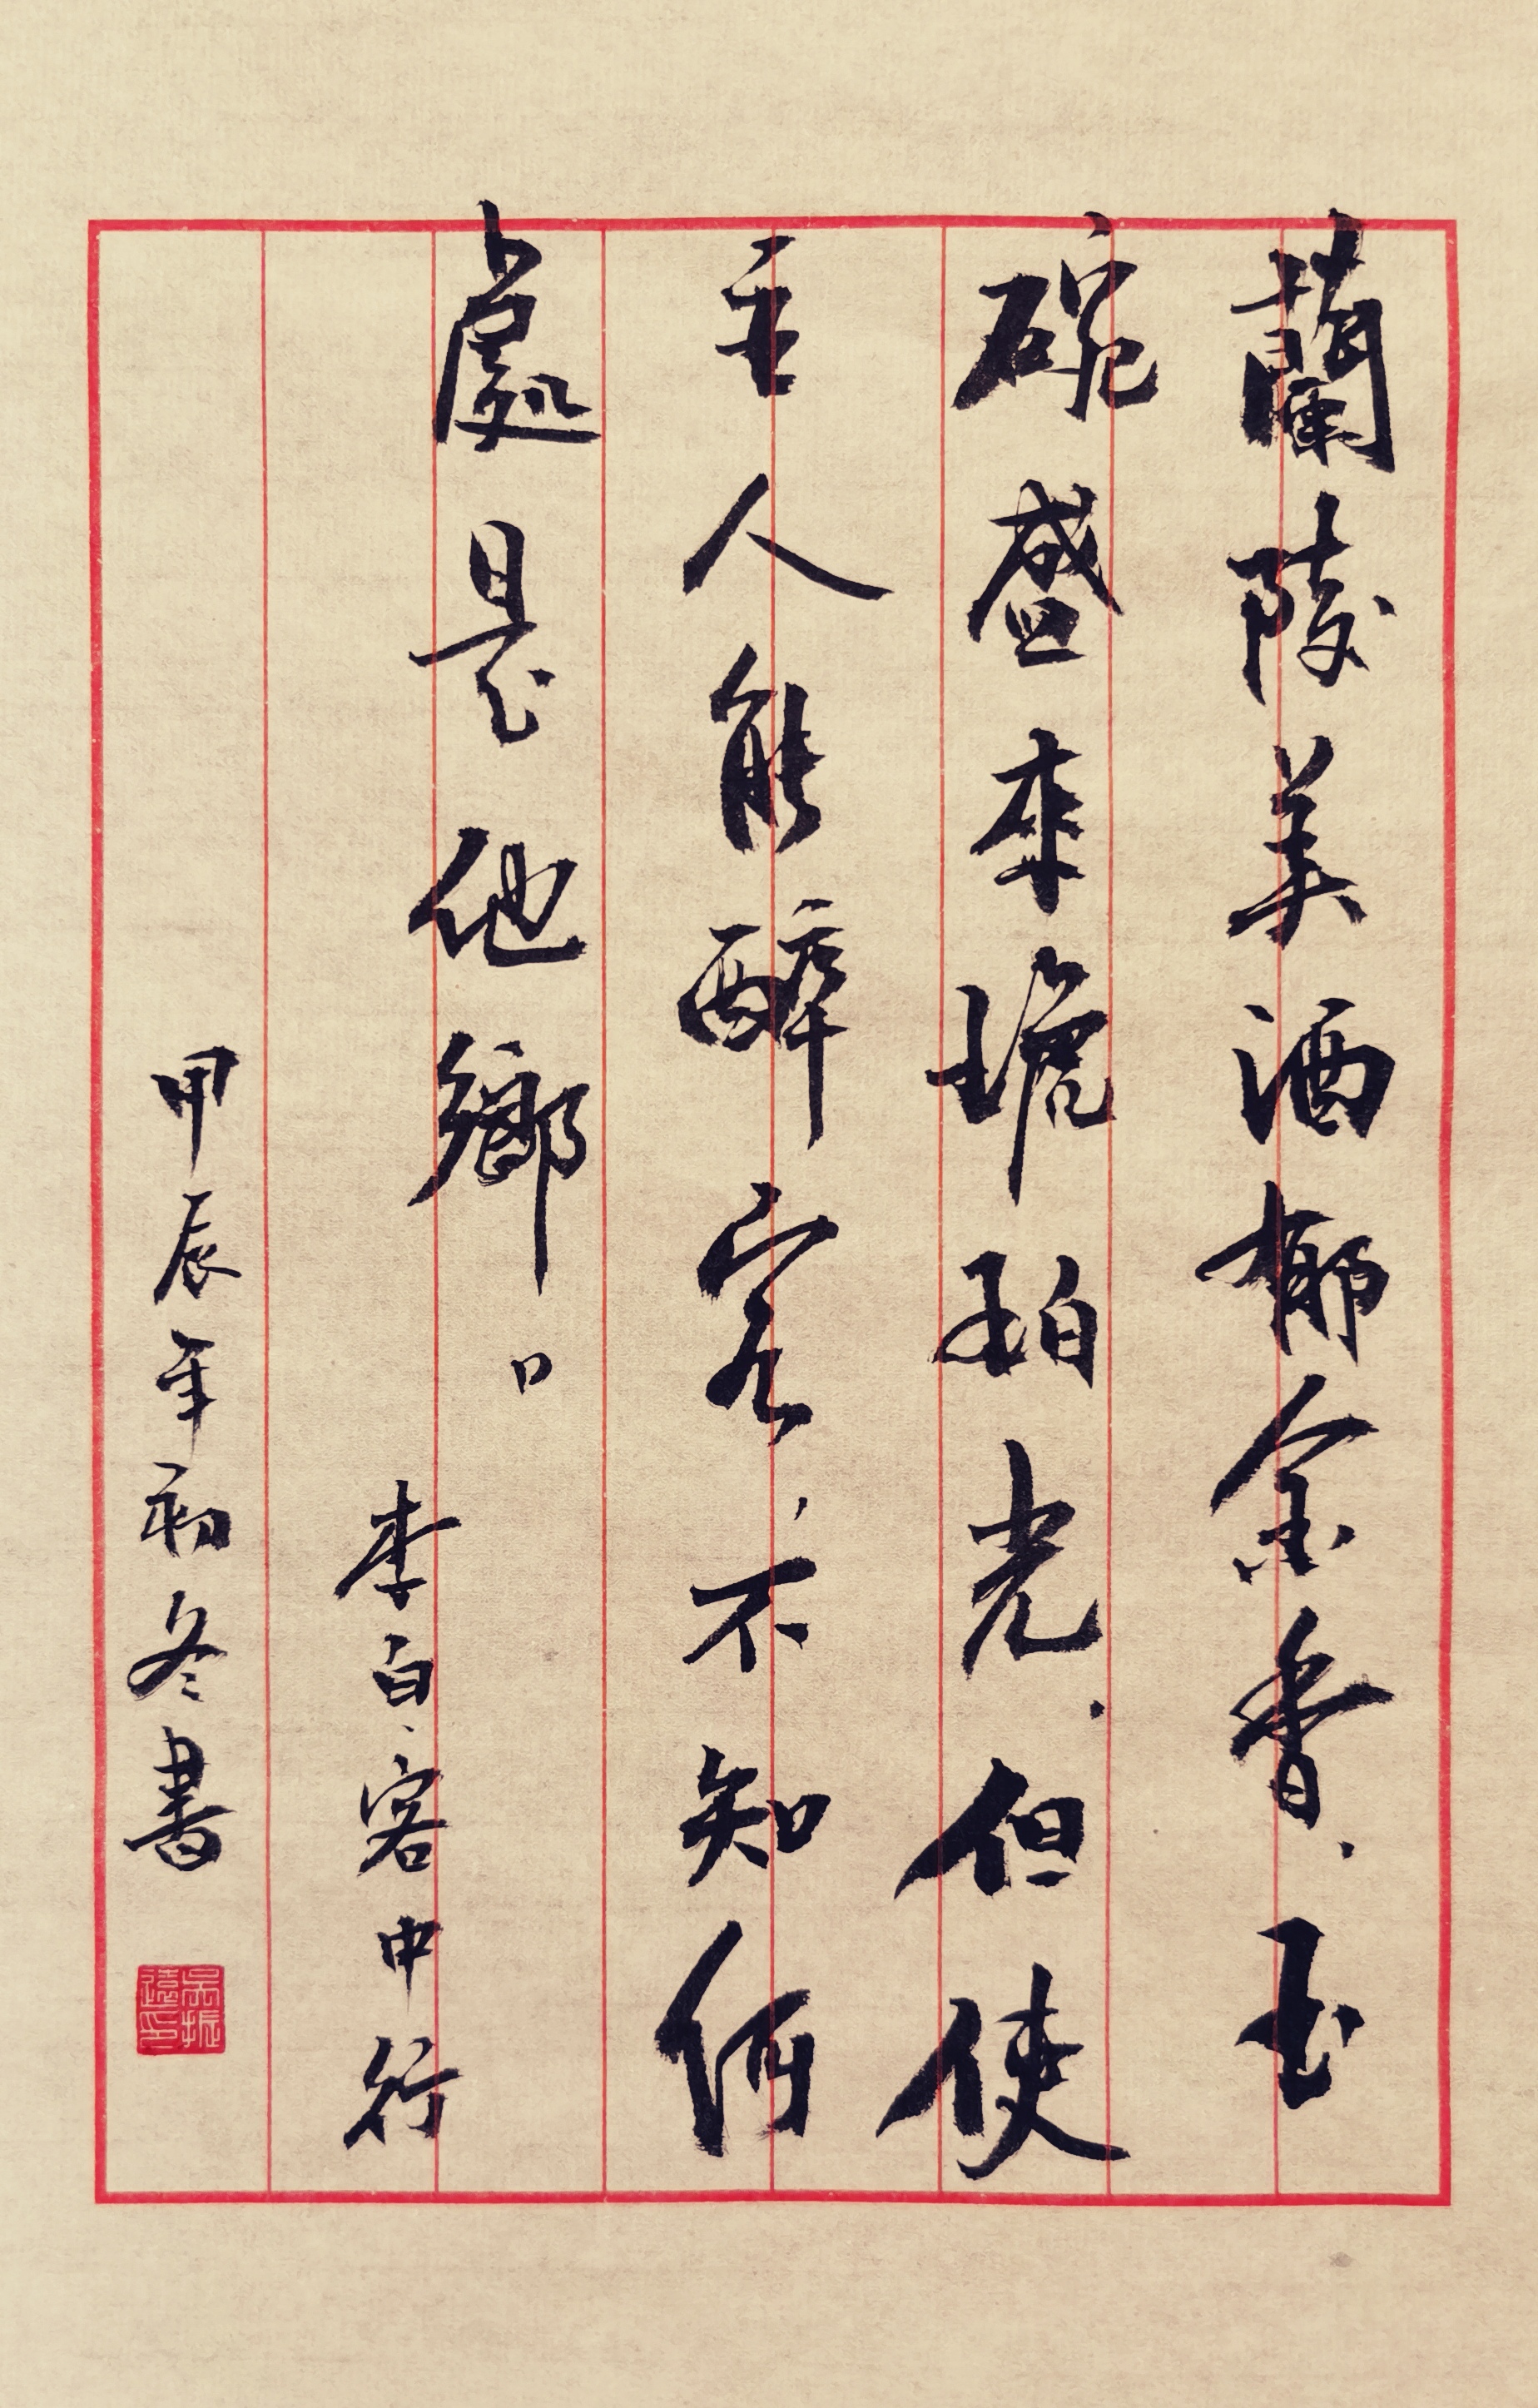 蘭陵美酒郁金香、玉
碗盛来琥珀光、但使
主人能醉客、不知何
處是他鄉。
李白、客中行
甲辰年初冬書
吴振遠印